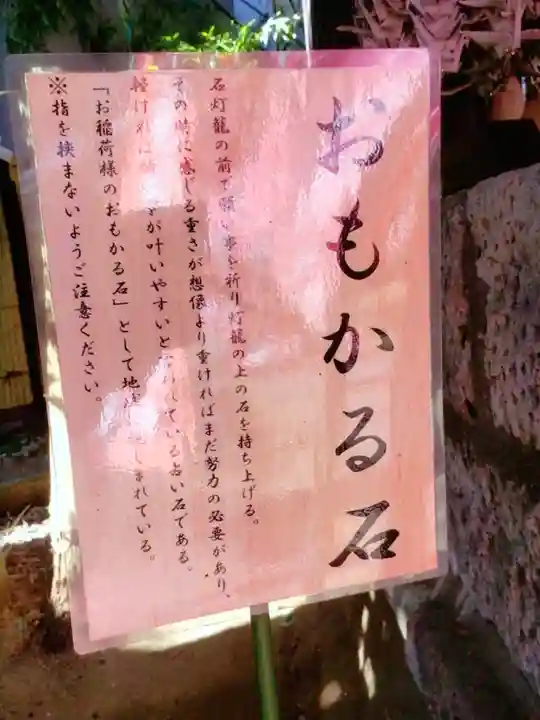 おもかる石
石灯籠の前で願い事を祈り灯籠の上の石を持ち上げる。
その時に感じる重さが想像より重ければまだ努力の必要があり、
軽ければ が叶いやすいと れている占い石である。
『お稲荷様のおもかる石」として地 しまれている。
※指を挟まないようご注意ください。